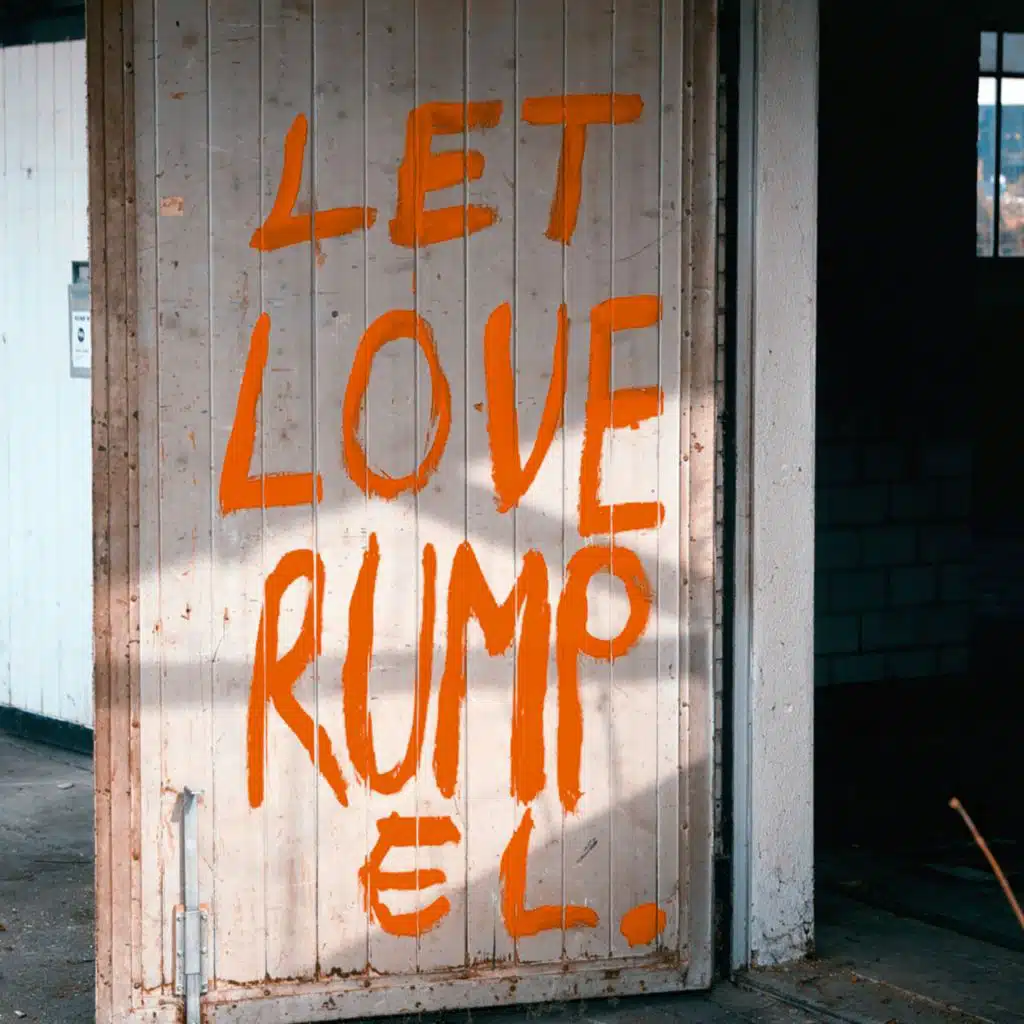 LET
LOVE
RUMP
EL.